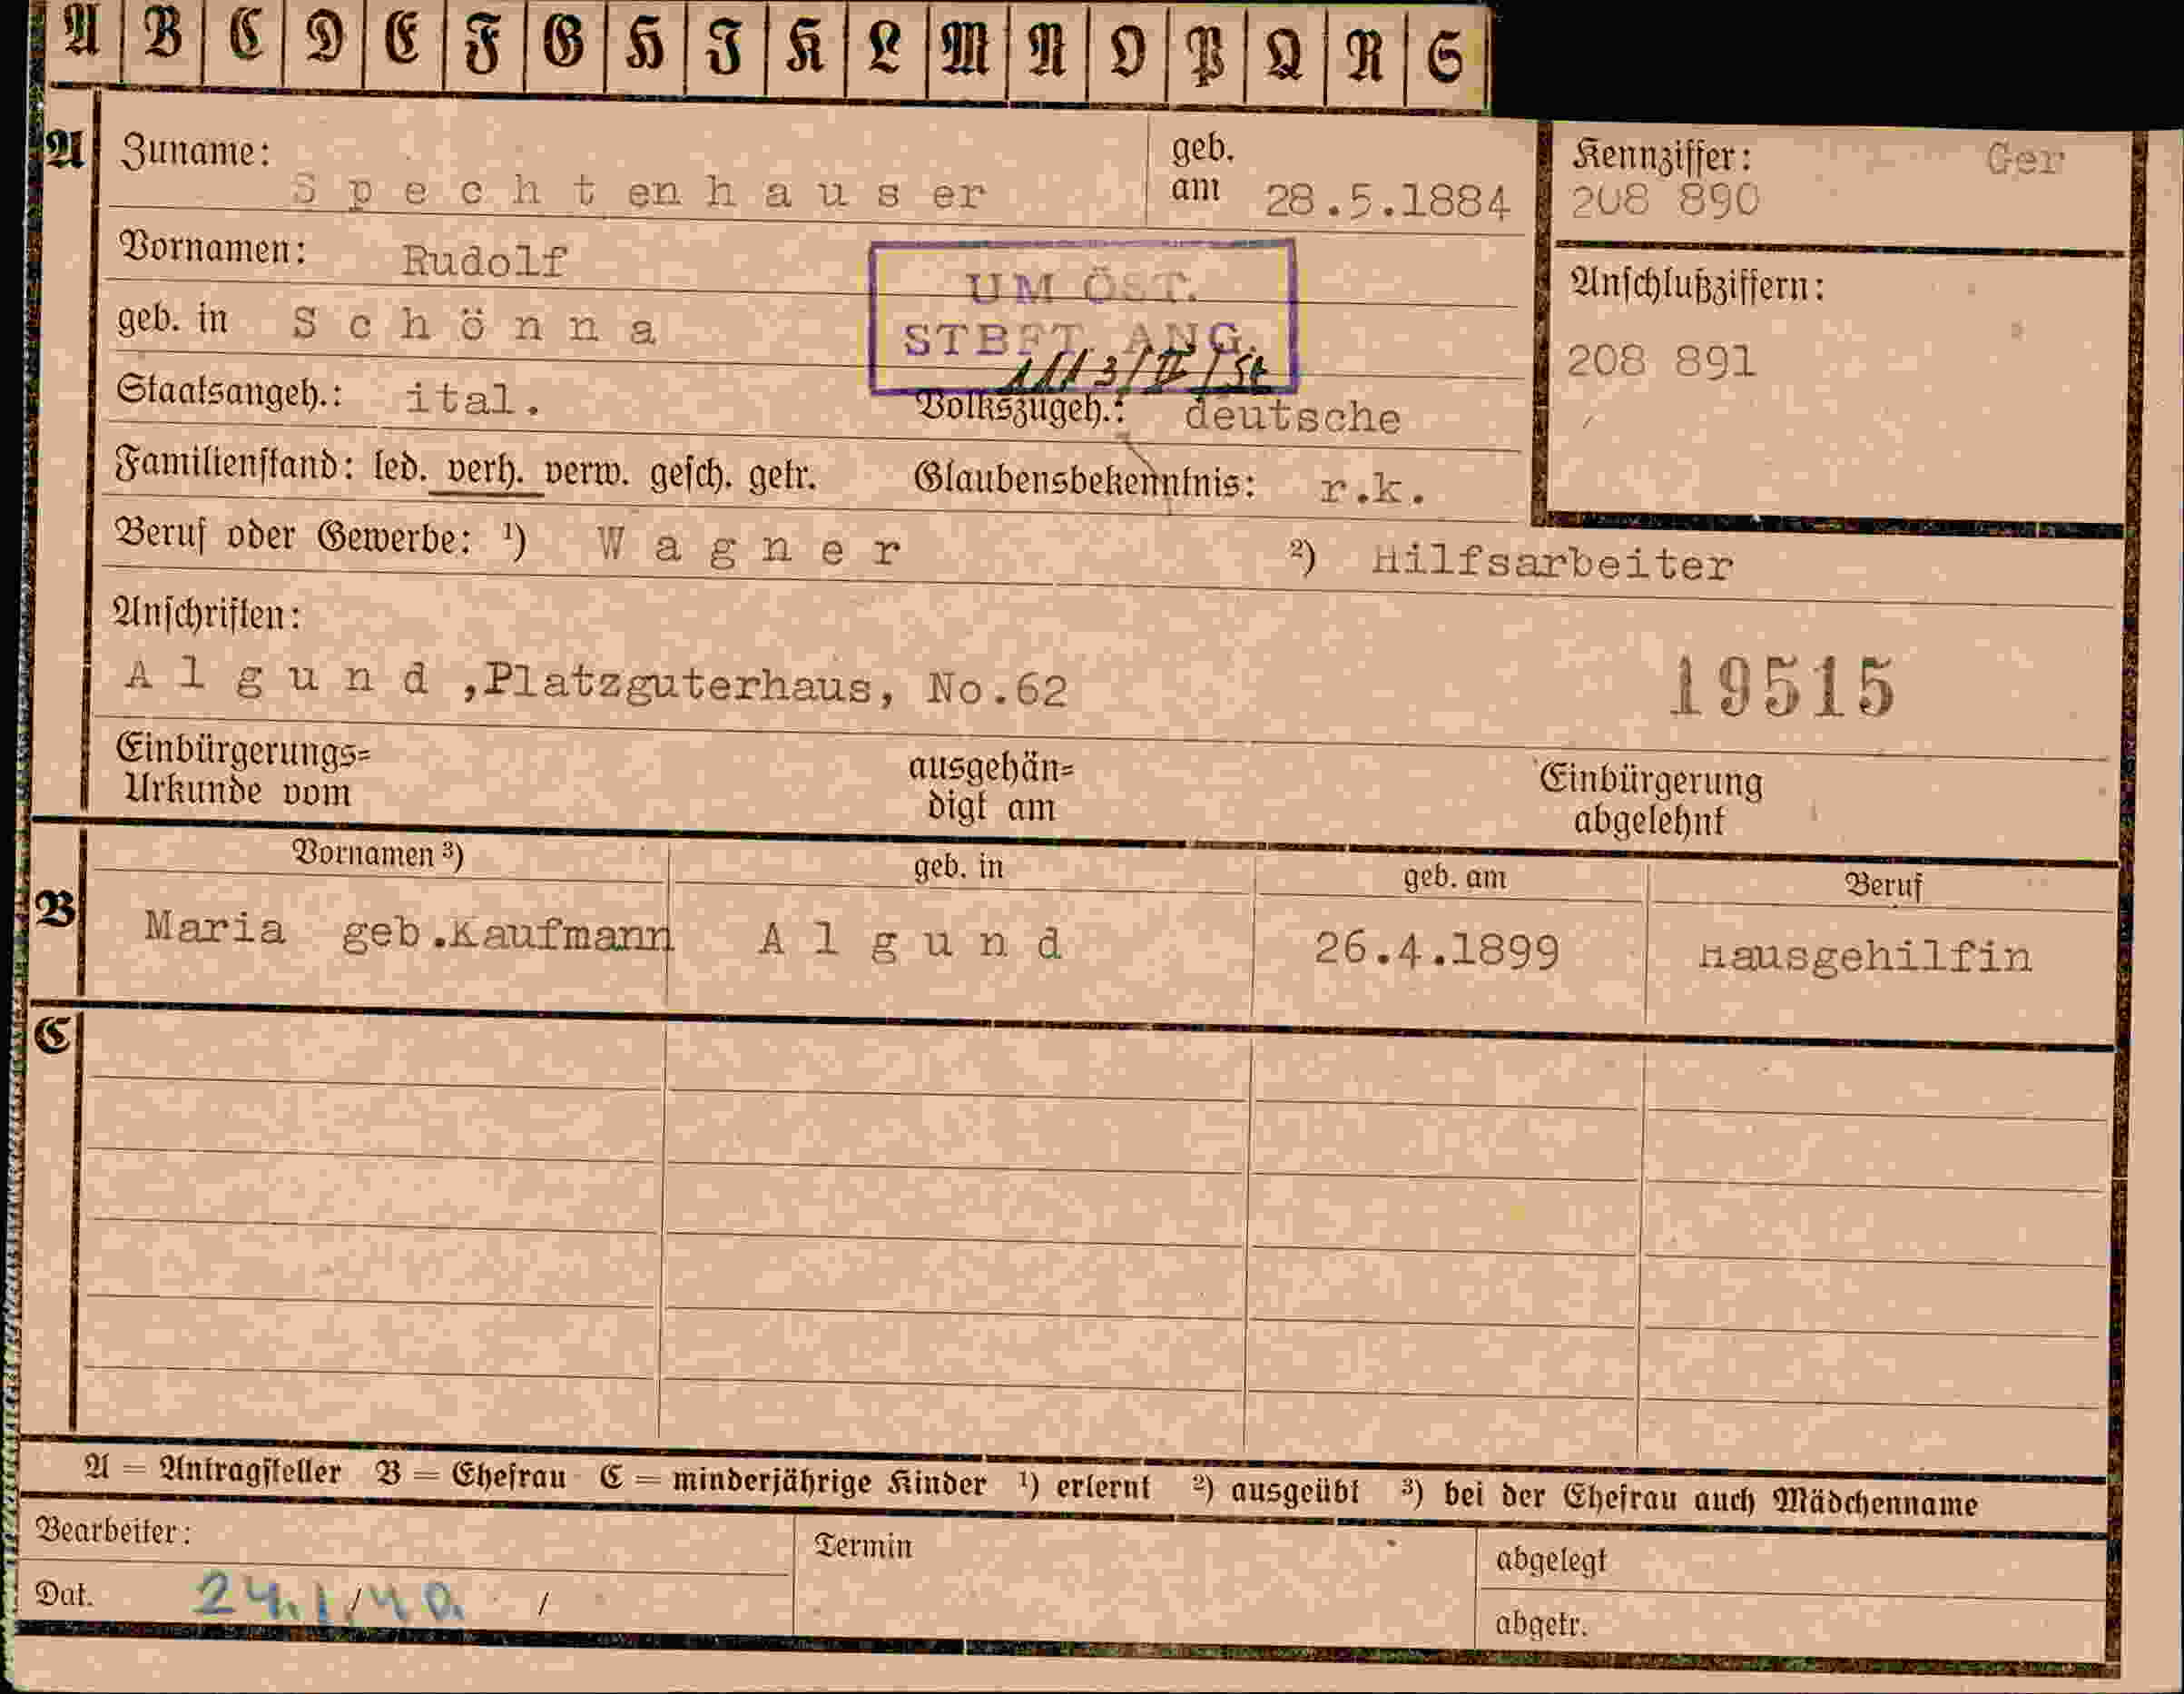 A B C D E F G H I K L M N O P Q R S
A Zuname: Spechtenhauser geb. am 28.5.1884
Kennziffer: Ger
208 890
Vornamen: Rudolf
UM ÖST.
STBFT. ANG.
geb. in Schönna
Anschlußziffern:
208 891
Staatsangeh.: ital. Volkszugeh.: deutsche
Familienstand: led. verh. verw. gesch. getr. Glaubensbekenntnis: r.k.
Beruf oder Gewerbe: ¹) Wagner ²) Hilfsarbeiter
Anschriften:
Algund, Platzguterhaus, No.62 19515
Einbürgerungs= ausgehän= Einbürgerung
Urkunde vom digt am abgelehnt
B Vornamen ³) geb. in geb. am Beruf
Maria geb.Kaufmann Algund 26.4.1899 Hausgehilfin
C
A = Antragsteller B = Ehefrau C = minderjährige Kinder ¹) erlernt ²) ausgeübt ³) bei der Ehefrau auch Mädchenname
Bearbeiter: Termin abgelegt
Dat. 24.1/40. / abgetr.